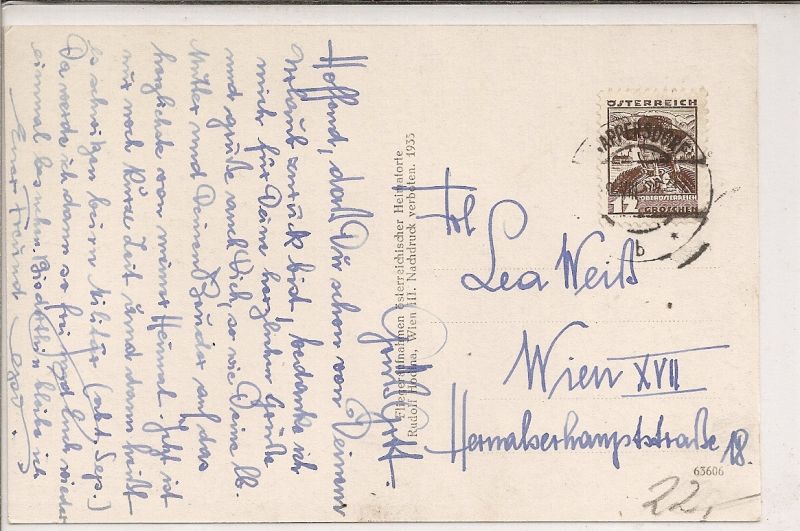 Grüß Gott.
Hoffend, daß Du schon von Deinem
Urlaub zurück bist, bedanke ich
mich für Deine herzlichen Grüße
und grüße auch Dich, so wie Deine lb.
Mutter und Deinen Bruder auf das
herzlichste von meiner Heimat. Jetzt ist
nur noch kurze Zeit und dann heißt
es einrücken beim Militär (akt. Sep.)
Da werde ich dann so frei sein und Euch wieder
einmal besuchen. Bis dorthin bleibe ich
Euer Freund
Fliegeraufnahmen österreichischer Heimatorte
Rudolf Hodina, Wien III. Nachdruck verboten. 1935
ÖSTERREICH
OBERÖSTERREICH
12 GROSCHEN
b *
Frl.
Lea Weiß
Wien XVII
Hernalserhauptstraße 18.
63606
22,-